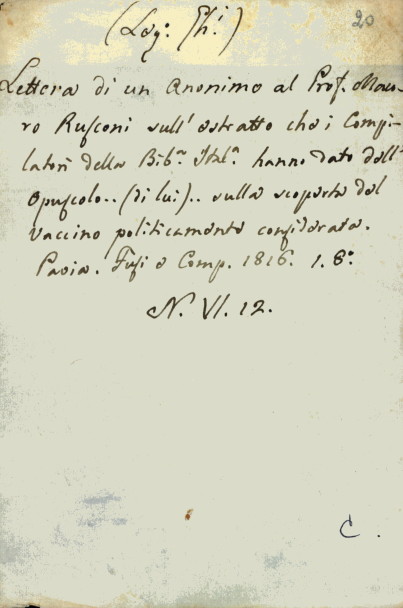 20
(Leg: Ph:)
Lettera di un Anonimo al Prof. Mau-
ro Rusconi sull' estratto che i Compi-
latori della Bib.a Ital.a hanno dato dell'
Opuscolo.. (di lui).. sulla scoperta del
Vaccino politicamente considerata.
Pavia. Fusi e Comp. 1816. 1. 8.o
N. VI. 12.
C.